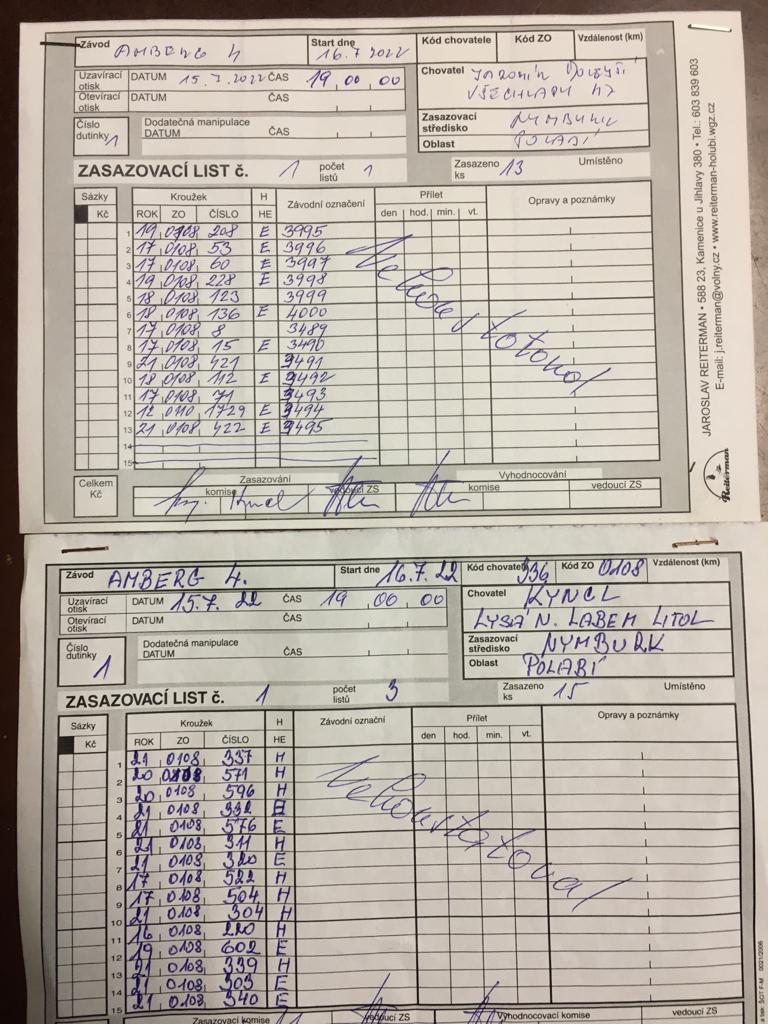 Závod AMBERG 4 Start dne 16.7.2022 Kód chovatele Kód ZO Vzdálenost (km)
Uzavírací otisk DATUM 15.7.2022 ČAS 19 00 00
Otevírací otisk DATUM ČAS
Chovatel JAROMÍR
VŠECHLAPY 47
Číslo dutinky 1 Dodatečná manipulace DATUM ČAS
Zasazovací středisko NYMBURK
Oblast POLABÍ
ZASAZOVACÍ LIST č. 1 počet listů 1 Zasazeno ks 13 Umístěno
Sázky Kroužek H Závodní označení Přílet Opravy a poznámky
Kč ROK ZO ČÍSLO HE den hod. min. vt.
1 19 0108 208 E 3995
2 17 0108 53 E 3996
3 17 0108 60 E 3997
4 19 0108 228 E 3998
5 18 0108 123 3999
6 18 0108 136 E 4000
7 17 0108 8 3489
8 17 0108 15 E 3490
9 21 0108 421 3491
10 18 0108 112 E 3492
11 17 0108 71 3493
12 12 0110 1729 E 3494
13 21 0108 422 E 3495
14
15
Nekonstatoval
Celkem Kč Zasazování Vyhodnocování
komise vedoucí ZS komise vedoucí ZS
JAROSLAV REITERMAN • 588 23, Kamenice u Jihlavy 380 • Tel.: 603 839 603
E-mail: j.reiterman@volny.cz • www.reiterman-holubi.wgz.cz
Reiterman
Závod AMBERG 4. Start dne 16.7.22 Kód chovatele 336 Kód ZO 0108 Vzdálenost (km)
Uzavírací otisk DATUM 15.7.22 ČAS 19 00 00
Otevírací otisk DATUM ČAS
Chovatel KYNCL
LYSÁ N. LABEM LITOL
Číslo dutinky 1 Dodatečná manipulace DATUM ČAS
Zasazovací středisko NYMBURK
Oblast POLABÍ
ZASAZOVACÍ LIST č. 1 počet listů 3 Zasazeno ks 15 Umístěno
Sázky Kroužek H Závodní označní Přílet Opravy a poznámky
Kč ROK ZO ČÍSLO HE den hod. min. vt.
1 21 0108 337 H
2 20 0108 571 H
3 20 0108 596 H
4 21 0108 332 H
5 21 0108 576 E
6 21 0108 311 H
7 21 0108 320 E
8 17 0108 522 H
9 17 0108 504 H
10 21 0108 304 H
11 16 0108 220 H
12 19 0108 602 E
13 21 0108 339 H
14 21 0108 303 E
15 21 0108 340 E
Nekonstatoval
Zasazovací komise vedoucí ZS Vyhodnocovací komise vedoucí ZS